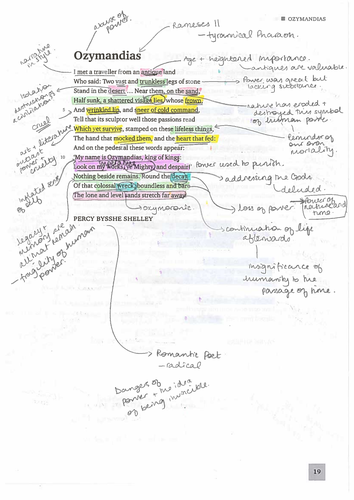 OZYMANDIAS
abuse of power.
Rameses II
– tyrannical Pharaoh.
narrative style
Ozymandias
Age + heightened importance.
antiques are valuable.
I met a traveller from an antique land
Who said: Two vast and trunkless legs of stone
Power was great but
Stand in the desert ... Near them, on the sand,
isolation
destruction of
civilisation
Half sunk, a shattered visage lies, whose frown,
nature has eroded +
destroyed the symbol
of human power
And wrinkled lip, and sneer of cold command,
cruel
Tell that its sculptor well those passions read
Which yet survive, stamped on these lifeless things,
reminder of
our own
mortality.
art + literature
outlast
power
cruelty
The hand that mocked them, and the heart that fed:
And on the pedestal these words appear:
'My name is Ozymandias, king of kings:
Look on my works, ye Mighty, and despair!'
Power used to punish.
inflated sense
of self
Nothing beside remains. Round the decay
addressing the Gods
– deluded.
Of that colossal wreck, boundless and bare
loss of power
power of
nature and
time.
The lone and level sands stretch far away.
oxymoronic
continuation of life
afterwards
PERCY BYSSHE SHELLEY
legacy +
memory are
all that remain
– fragility of human
power.
insignificance of
humanity to the
passage of time.
Romantic Poet
– radical
Dangers of
power + the idea
of being invincible.
19